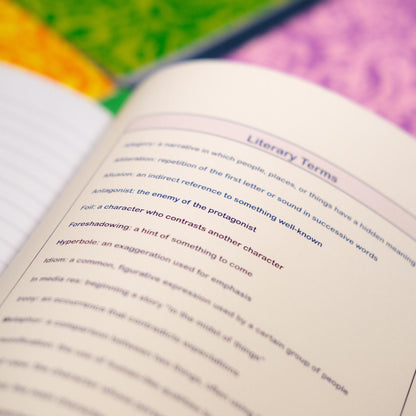 Literary Terms
Allegory: a narrative in which people, places, or things have a hidden meaning
Alliteration: repetition of the first letter or sound in successive words
Allusion: an indirect reference to something well-known
Antagonist: the enemy of the protagonist
Foil: a character who contrasts another character
Foreshadowing: a hint of something to come
Hyperbole: an exaggeration used for emphasis
Idiom: a common, figurative expression used by a certain group of people
In media res: beginning a story "in the midst of things"
Irony: an occurrence that contradicts expectations
Metaphor: a comparison between two things, often using